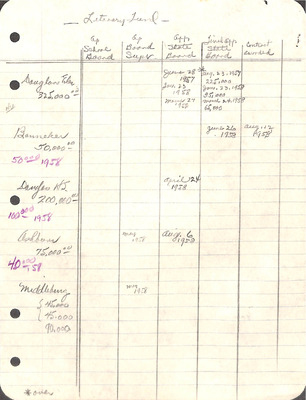 Literary Fund
Ap School Board
Ap Board Supv
App State Board
Final App State Board
Contract Awarded
Douglas Elem
325,000.00
June 28 1957
Jan. 23 1958
March 24 1958
Aug. 23, 1957
225,000
Jan. 23, 1958
35,000
March 24, 1958
65,000
Banneker
50,000.00
50 1958
June 26 1958
Aug. 12 1958
Douglas H.S.
200,000.00
100,000 1958
April 24 1958
Ashburn
75,000.00
40,000 58
May 1958
Aug. 6 1958
Middleburg
45,000
45,000
90,000
May 1958
*over